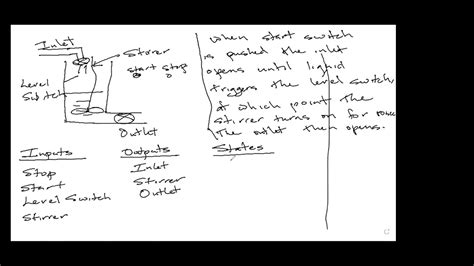 Inlet
Stirrer
Start Stop
Level
Switch
Outlet
When start switch
is pushed the inlet
opens until liquid
triggers the level switch,
at which point the
stirrer turns on for
The outlet then opens.
Inputs
Stop
Start
Level Switch
Stirrer
Outputs
Inlet
Stirrer
Outlet
States